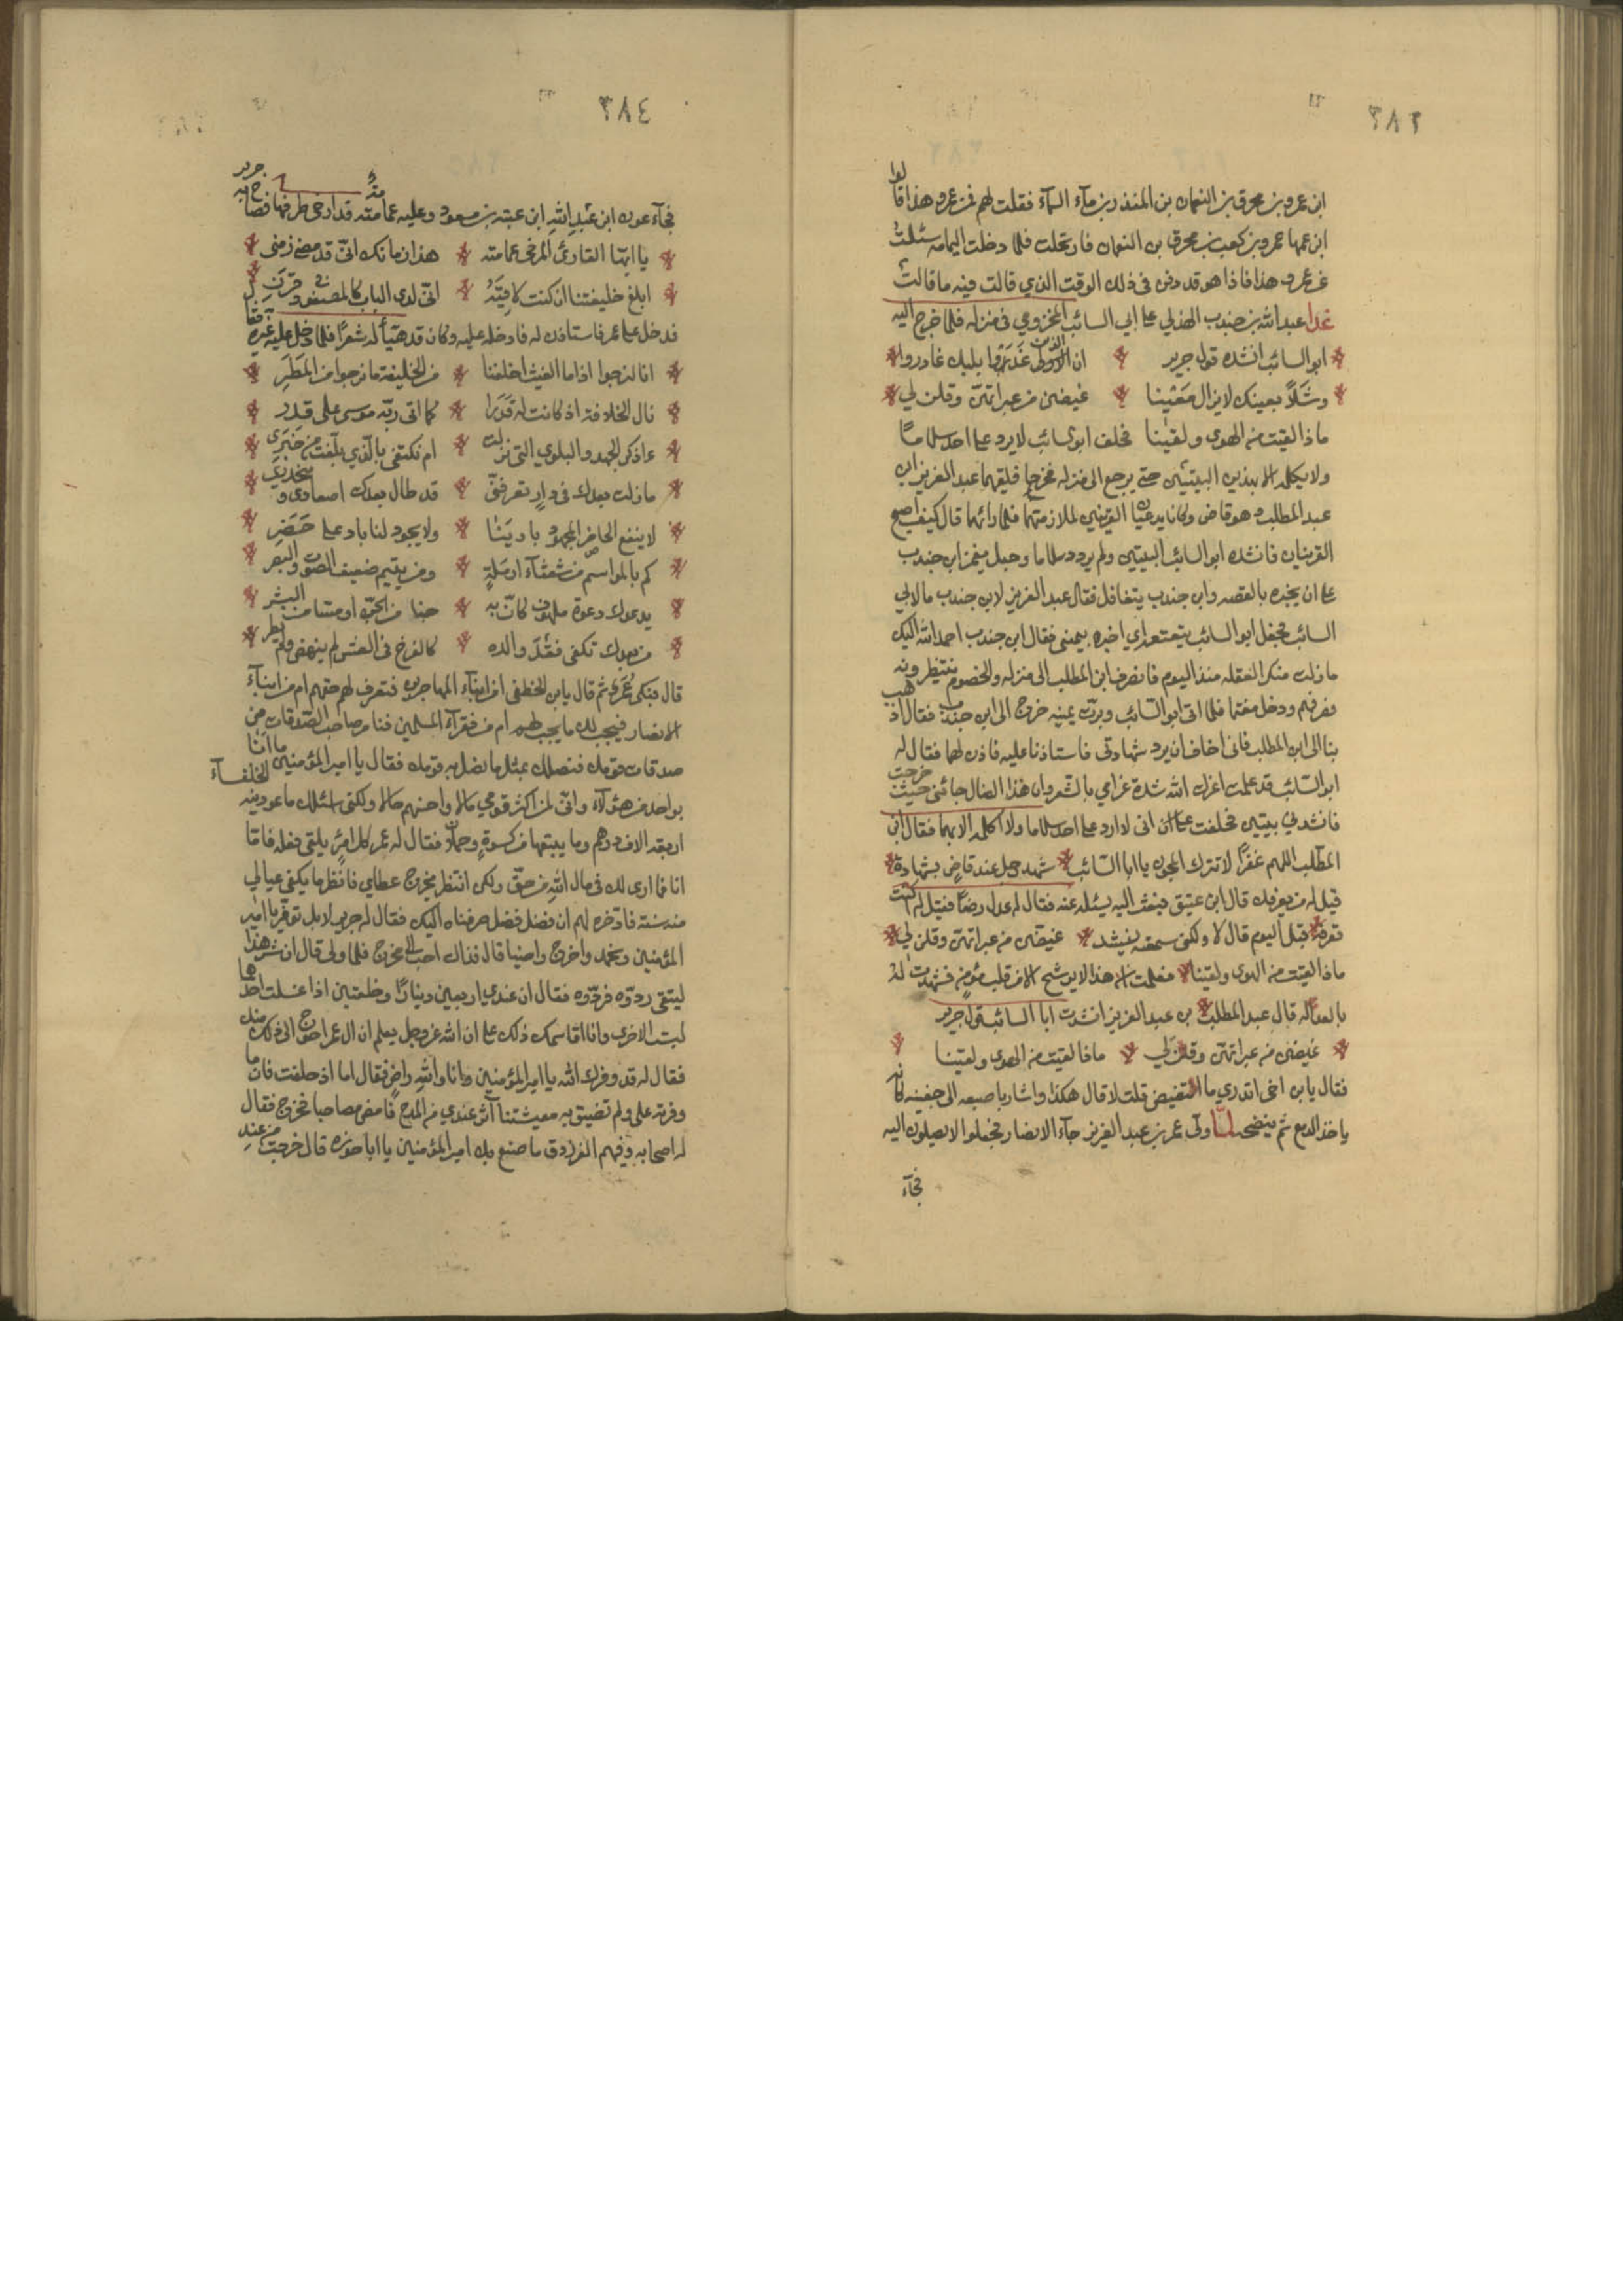 ٣٨٣
ابن عمرو بن محرق بن النعمان بن المنذر بن مآء السمآء فقلت لهم فمن عمرو هذا قالوا
ابن عمها عمرو بن كعب بن محرق بن النعمان فارتحلت فلما دخلت اليمامه سئلت
عن عمرو هذا فاذا هو قد دفن فى ذلك الوقت الذي قالت فيه ما قالت
غدا عبد الله بن جندب الهذلي على ابي السائب المخزومي فى منزله فلما خرج اليه
ابو السائب انشده قول جرير ان الذين غدوا بلبك غادروا
وشلاً بعينك لا يزال معينا غيضن من عبراتهن وقلن لي
ماذا لقيت من الهوى ولقينا فحلف ابو السائب لا يرد على احد سلاما
ولا يكلمه الا بهذين البيتين حتى يرجع الى منزله فخرجا فلقيهما عبد العزيز ابن
عبد المطلب وهو قاض وكانا يدعيان القرينين لملازمتهما فلما رائهما قال كيف اصبح
القرينان فانشده ابو السائب البيتين ولم يردد سلاما وجعل يغمز ابن جندب
على ان يخبره بالقصه وابن جندب يتغافل فقال عبد العزيز لابن جندب ما لابي
السائب فجعل ابو السائب يتمتم اي اخبره بيميني فقال ابن جندب احمد الله اليك
ما زلت منكر الفعله منذ اليوم فانصرف ابن المطلب الى منزله والخصوم ينتظرونه
فصرفهم ودخل مغتما فلما اتى ابو السائب وبرت يمينه خرج الى ابن جندب فقال اذهب
بنا الى ابن المطلب فانى اخاف ان يرد شهادتى فاستاذنا عليه فاذن لهما فقال له
ابو السائب قد علمت اعزك الله شدة غرامي بالشعر وان هذا الضال جائنى حين خرجت
فانشدني بيتين فحلفت على ان انى لا ارد على احد سلاما ولا اكلمه الا بهما فقال ابن
المطلب اللهم غفرًا لا تترك المجون يا ابا السائب شهد رجل عند قاض بشهادة
قيل له من يعرفك قال ابن عتيق فبعث اليه يسئله عنه فقال له عدل رضًا فقيل له اكنت
تعرفه قبل اليوم قال لا ولكنى سمعته ينشد غيضن من عبراتهن وقلن لي
ماذا لقيت من الهوى ولقينا فعلمت ان هذا لا يرسخ الا فى قلب مؤمن فشهدت له
بالعداله قال عبد المطلب بن عبد العزيز انشدت ابا السائب قول جرير
غيضن من عبراتهن وقلن لي ماذا لقيت من الهوى ولقينا
فقال يابن اخى اتدري ما التغيض قلت لا قال هكذا واشار باصبعه الى جفنه كانه
ياخذ الدمع ثم ينضحه لما ولّى عمر بن عبد العزيز جآء الانصار فجعلوا لا يصلون اليه
فجآء
٣٨٤
فجآء عون ابن عبد الله ابن عتبه بن مسعود وعليه عمامته قد ارخى طرفها فصاح به جرير
يا ايها القارئ المرخى عمامته هذا زمانك انّى قد مضى زمنى
ابلغ خليفتنا ان كنت لاقيه انّى لدى الباب كالمصفود فى قرن
فدخل على عمر فاستاذن له فادخله عليه وكان قد هيّأ له شعرًا فلما دخل عليه غيره فقال
انا لنرجوا اذا ما الغيث اخلفنا من الخليفة ما نرجوا من المطر
نال الخلافة اذ كانت له قدرا كما اتى ربّه موسى على قدر
ءاذكر الجهد والبلوي التى نزلت ام نكتفى بالذي بلّغت من خبرى
ما زلت بعدك فى دار تعرقنى قد طال بعدك اصعادى ومنحدري
لا ينفع الحاضر المجهود بادينا ولا يجود لنا باد على حضر
كم بالمواسم من شعثآء ارملة ومن يتيم ضعيف الصوت والبصر
يدعوك دعوة ملهوف كانّ به جنا من الجن او مسّا من البشر
من بعدك تكفى فقد والده كالفرخ فى العش لم ينهض ولم يطر
قال فبكى عمر ثم قال يابن الخطفى امن ابنآء المهاجرين فنعرف لهم حقهم ام من ابنآء
الانصار فيجب لك ما يجب لهم ام من فقرآء المسلمين فنامر صاحب الصدقات من
صدقات قومك فنصلك بمثل ما نصل به قومك فقال يا امير المؤمنين ما انا
بواحد من هؤلآء وانّى لمن اكثر قومي مالا واحسنهم حالا ولكنى اسئلك ما عودنيه الخلفآء
اربعة الاف درهم وما يتبعها من كسوةٍ وحملان فقال له عمر كل امرئ يلقى فعله فاما
انا فما ارى لك فى مال الله من حق ولكن انتظر يخرج عطاي فانظر ما يكفى عيالي
منه سنة فادّخره لهم ان فضل فضل صرفناه اليك فقال له جرير لا بل توفّر يا امير
المؤمنين وتحمد واخرج راضيا قال فذاك احب الى فخرج فلما ولى قال ان شر هذا
ليتقى ردوه فردوه فقال ان عندي اربعين دينارًا وخلعتين اذا غسلت احداهما
لبست الاخرى وانا اقاسمك ذلك على ان الله عز وجل يعلم ان ال عمر احوج الى ذلك منك
فقال له قد وفرك الله يا امير المؤمنين وانا والله راضٍ فقال اما اذ حلفت فان ما
وفرته على ولم تضيق به معيشتنا آثر عندي من المدح فامض مصاحبا فخرج فقال
له اصحابه وفيهم الفرزدق ما صنع بك امير المؤمنين يا ابا حزره قال خرجت من عند